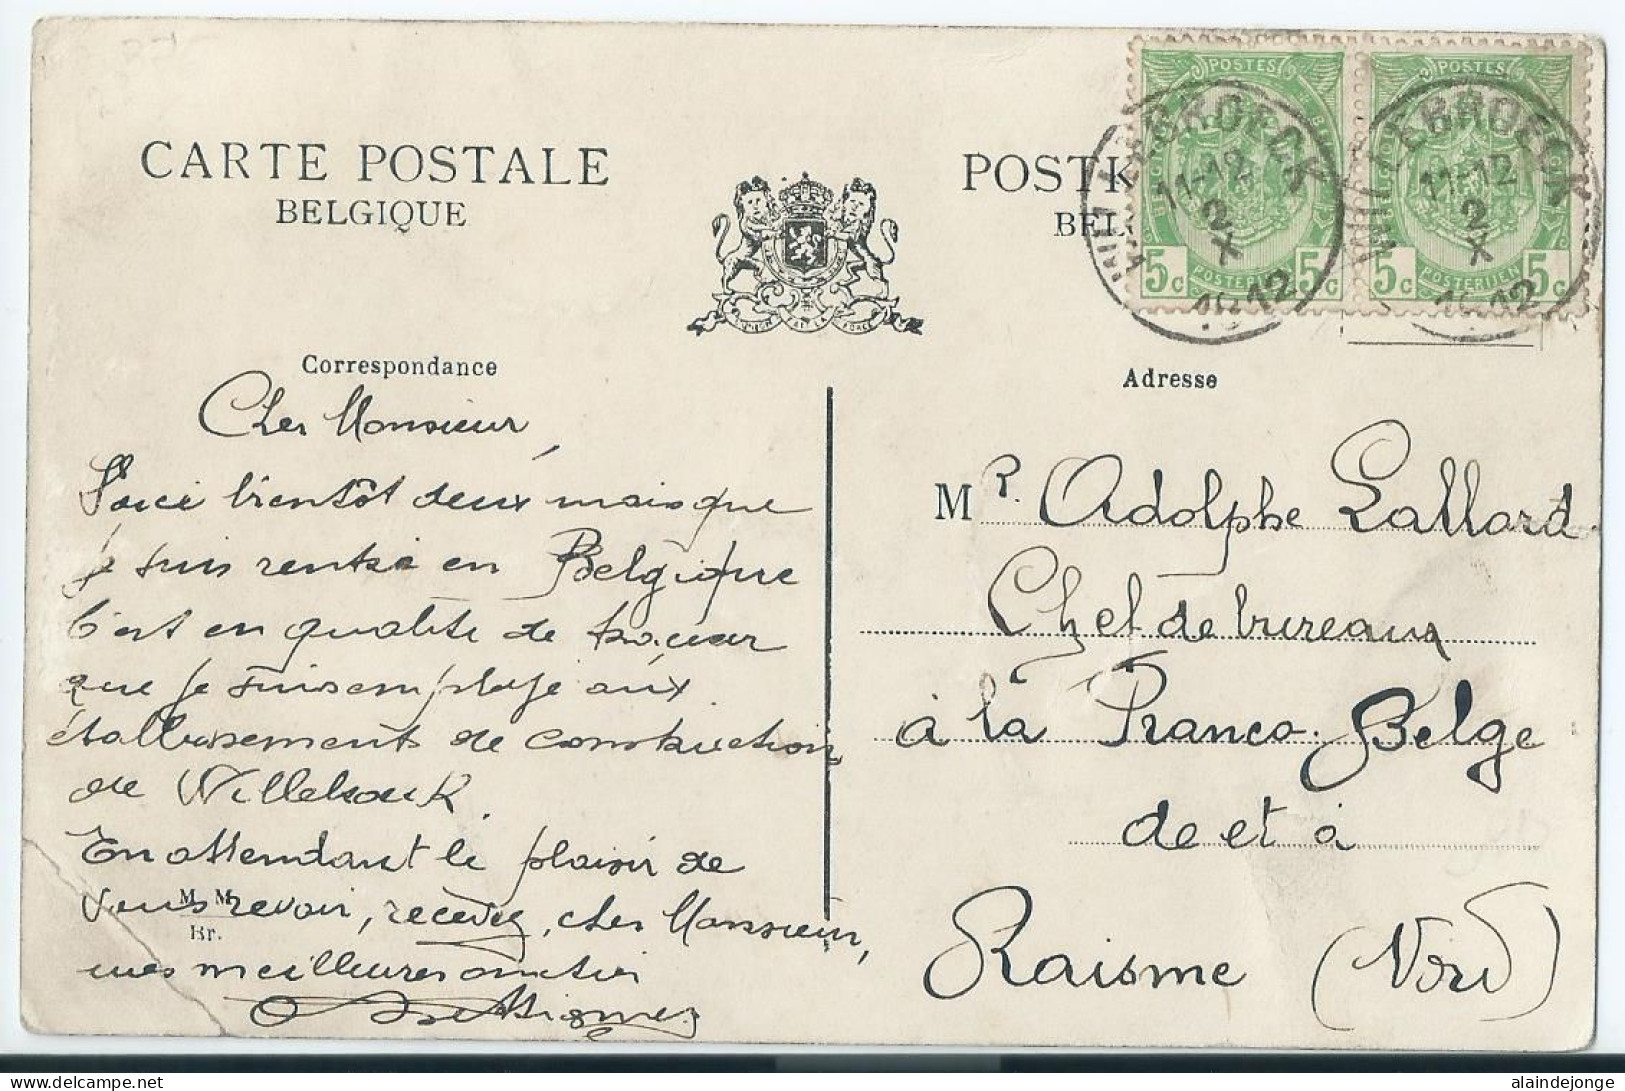 CARTE POSTALE
BELGIQUE
POSTK
BEL
POSTES
POSTES
WILLEBROECK
11-12
2
X
1912
WILLEBROECK
11-12
2
X
1912
5c POSTERIJEN 5c
5c POSTERIJEN 5c
Correspondance
Adresse
Cher Monsieur,
Voici bientôt deux mois que
je suis rentré en Belgique
C'est en qualité de
que je suis employé aux
établissements de construction
de Willebrouck.
En attendant le plaisir de
vous revoir, recevez, cher Monsieur,
mes meilleures amitiés
M. M.
Br.
Mr. Adolphe Lallard
Chef de bureaux
à la Franco-Belge
de et à
Raisme (Nord)
alaindejonge
delcampe.net